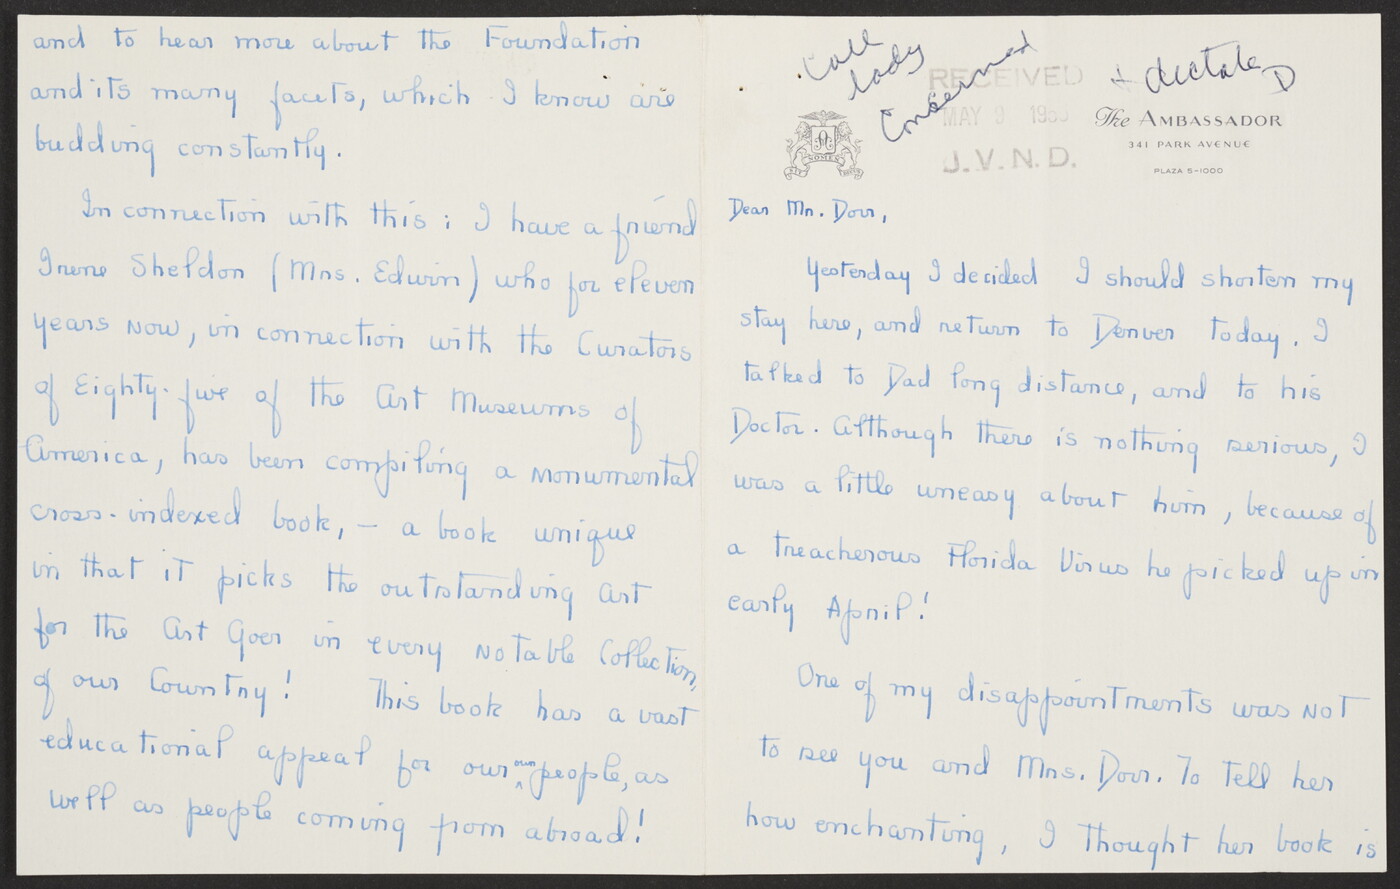 Call
lady
+ dictate
D
RECEIVED
MAY 9 195
J. V. N. D.
The AMBASSADOR
341 PARK AVENUE
PLAZA 5-1000
Dear Mr. Dorr,
Yesterday I decided I should shorten my
stay here, and return to Denver today. I
talked to Dad long distance, and to his
Doctor. Although there is nothing serious, I
was a little uneasy about him, because of
a treacherous Florida Virus he picked up in
early April!
One of my disappointments was not
to see you and Mrs. Dorr. To tell her
how enchanting, I thought her book is
and to hear more about the Foundation
and its many facets, which I know are
budding constantly.
In connection with this; I have a friend
Irene Sheldon (Mrs. Edwin) who for eleven
years now, in connection with the Curators
of Eighty-five of the Art Museums of
America, has been compiling a monumental
cross-indexed book, - a book unique
in that it picks the outstanding Art
for the Art Goer in every notable Collection,
of our Country! This book has a vast
educational appeal for our own people, as
well as people coming from abroad!